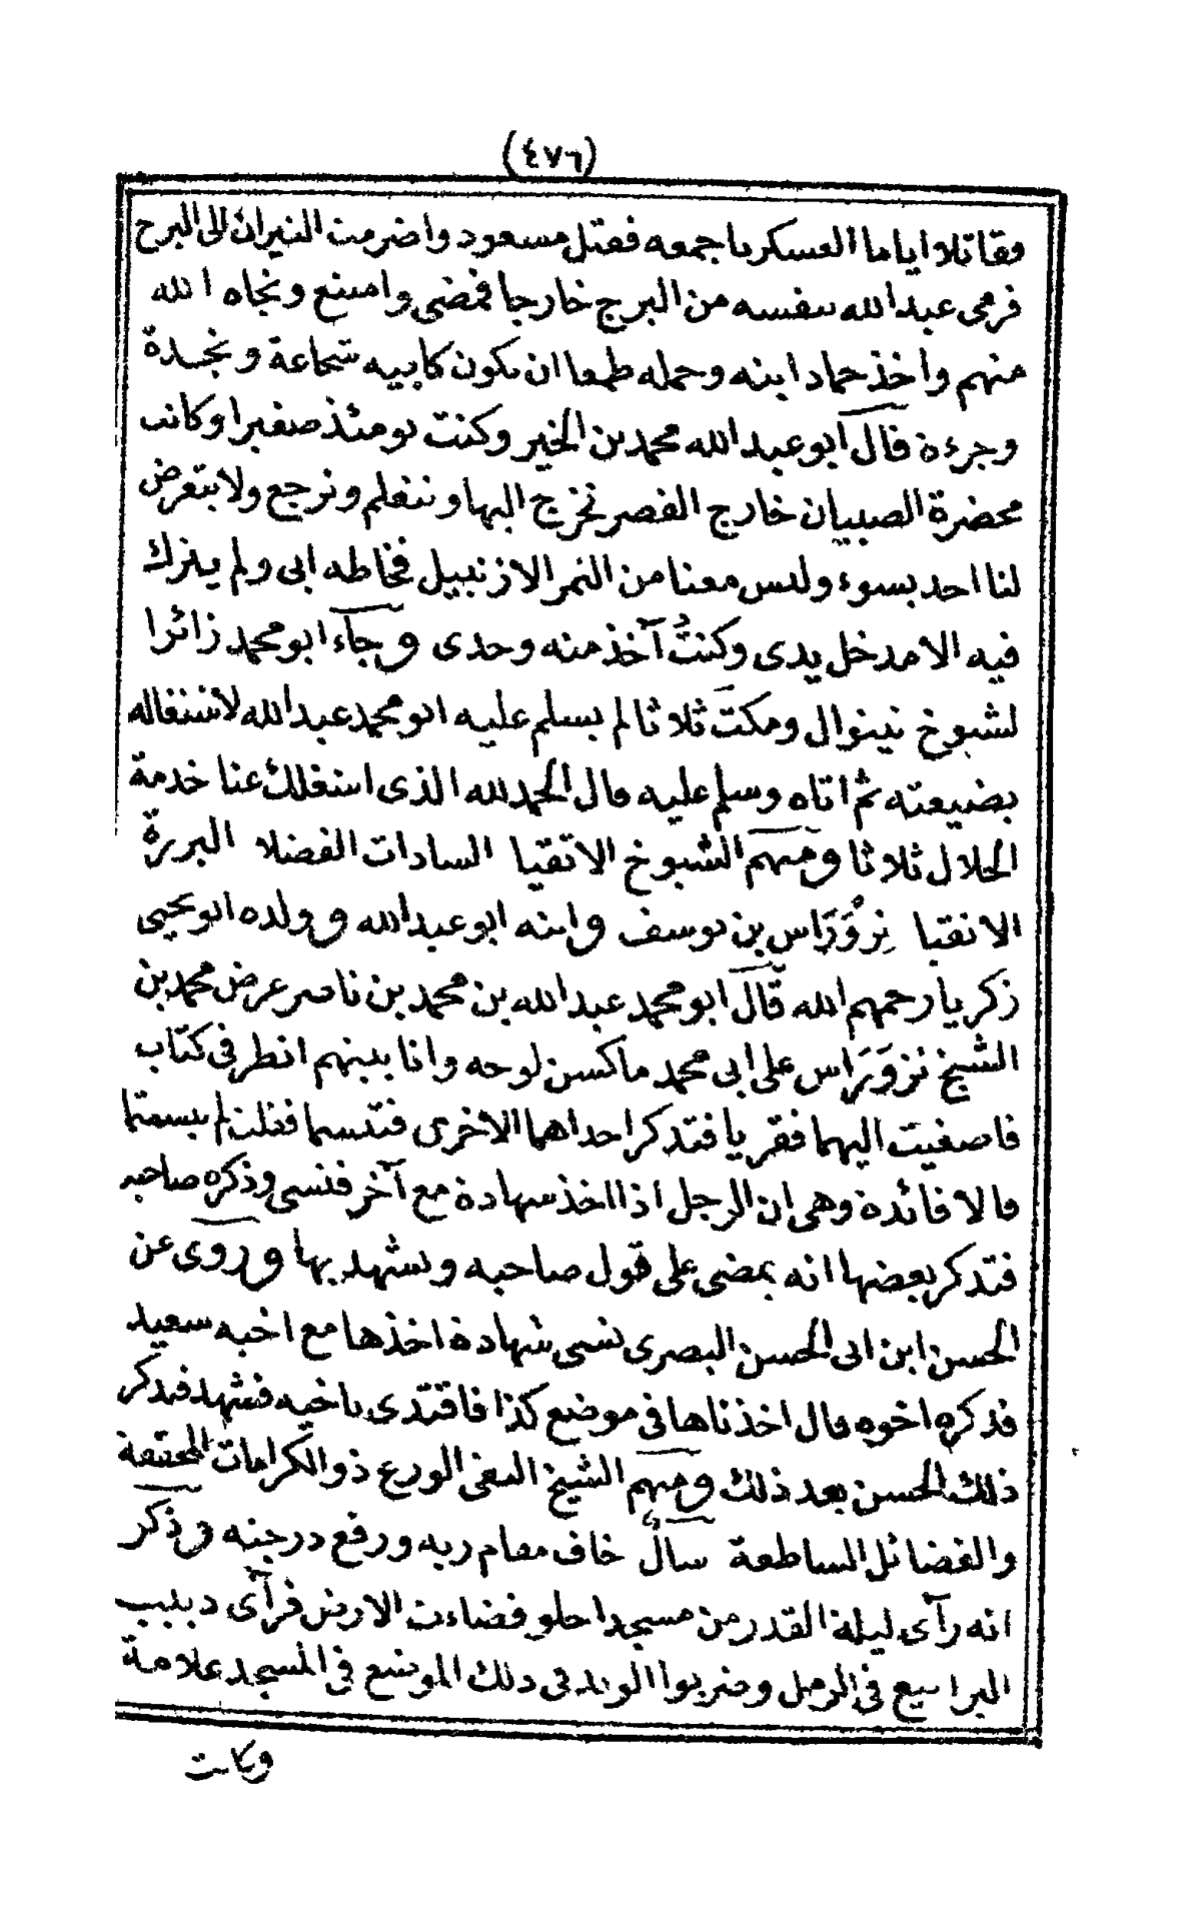 (٤٧٦)
وقاتلا اياما العسكر باجمعه فقتل مسعود واضرمت النيران الى البرج
فرمى عبدالله بنفسه من البرج خارجا فمضى وامتنع ونجاه الله
منهم واخذ حماد ابنه وحمله طمعا ان يكون كابيه شجاعة ونجدة
وجرءة قال ابو عبد الله محمد بن الخير وكنت يومئذ صغيرا وكانت
محضرة الصبيان خارج القصر نخرج اليها ونتعلم ونرجع ولا يتعرض
لنا احد بسوء وليس معنا من التمر الا زنبيل فخاطه ابى ولم يترك
فيه الا مدخل يدى وكنتُ آخذ منه وحدى وجاء ابو محمد زائرا
لشيوخ تينوال ومكث ثلاثا لم يسلم عليه ابو محمد عبدالله لاشتغاله
بضيعته ثم اتاه وسلم عليه قال الحمد لله الذى اشغلك عنا خدمة
الحلال ثلاثا ومنهم الشيوخ الاتقيا السادات الفضلا البررة
الانقيا نِزْوَرَاس بن يوسف وابنه ابو عبدالله وولده ابو يحيى
زكريا رحمهم الله قال ابو محمد عبد الله بن محمد بن ناصر عرض محمد بن
الشيخ نزوَرَاس على ابى محمد ماكسن لوحه وانا بينهم انظر فى كتاب
فاصغيت اليهما فقريا فتذكر احداهما الاخرى فتبسما فقلت لم تبسمتما
قالا فائدة وهى ان الرجل اذا اخذ شهادة مع آخر فنسى وذكره صاحبه
فتذكر بعضها انه يمضى على قول صاحبه ويشهد بها وروى عن
الحسن ابن ابى الحسن البصرى نسى شهادة اخذها مع اخيه سعيد
فذكره اخوه قال اخذناها فى موضع كذا فاقتدى باخيه فشهد فتذكر
ذلك الحسن بعد ذلك ومنهم الشيخ التقى الورع ذو الكرامات المحققة
والفضائل الساطعة خاف مقام ربه ورفع درجته وذكر
انه رآى ليلة القدر من مسجد احلو فضاءت الارض فرآى دبيب
البرابيع فى الرمل وضربوا الوتد فى ذلك الموضع فى المسجد علامة
وكانت